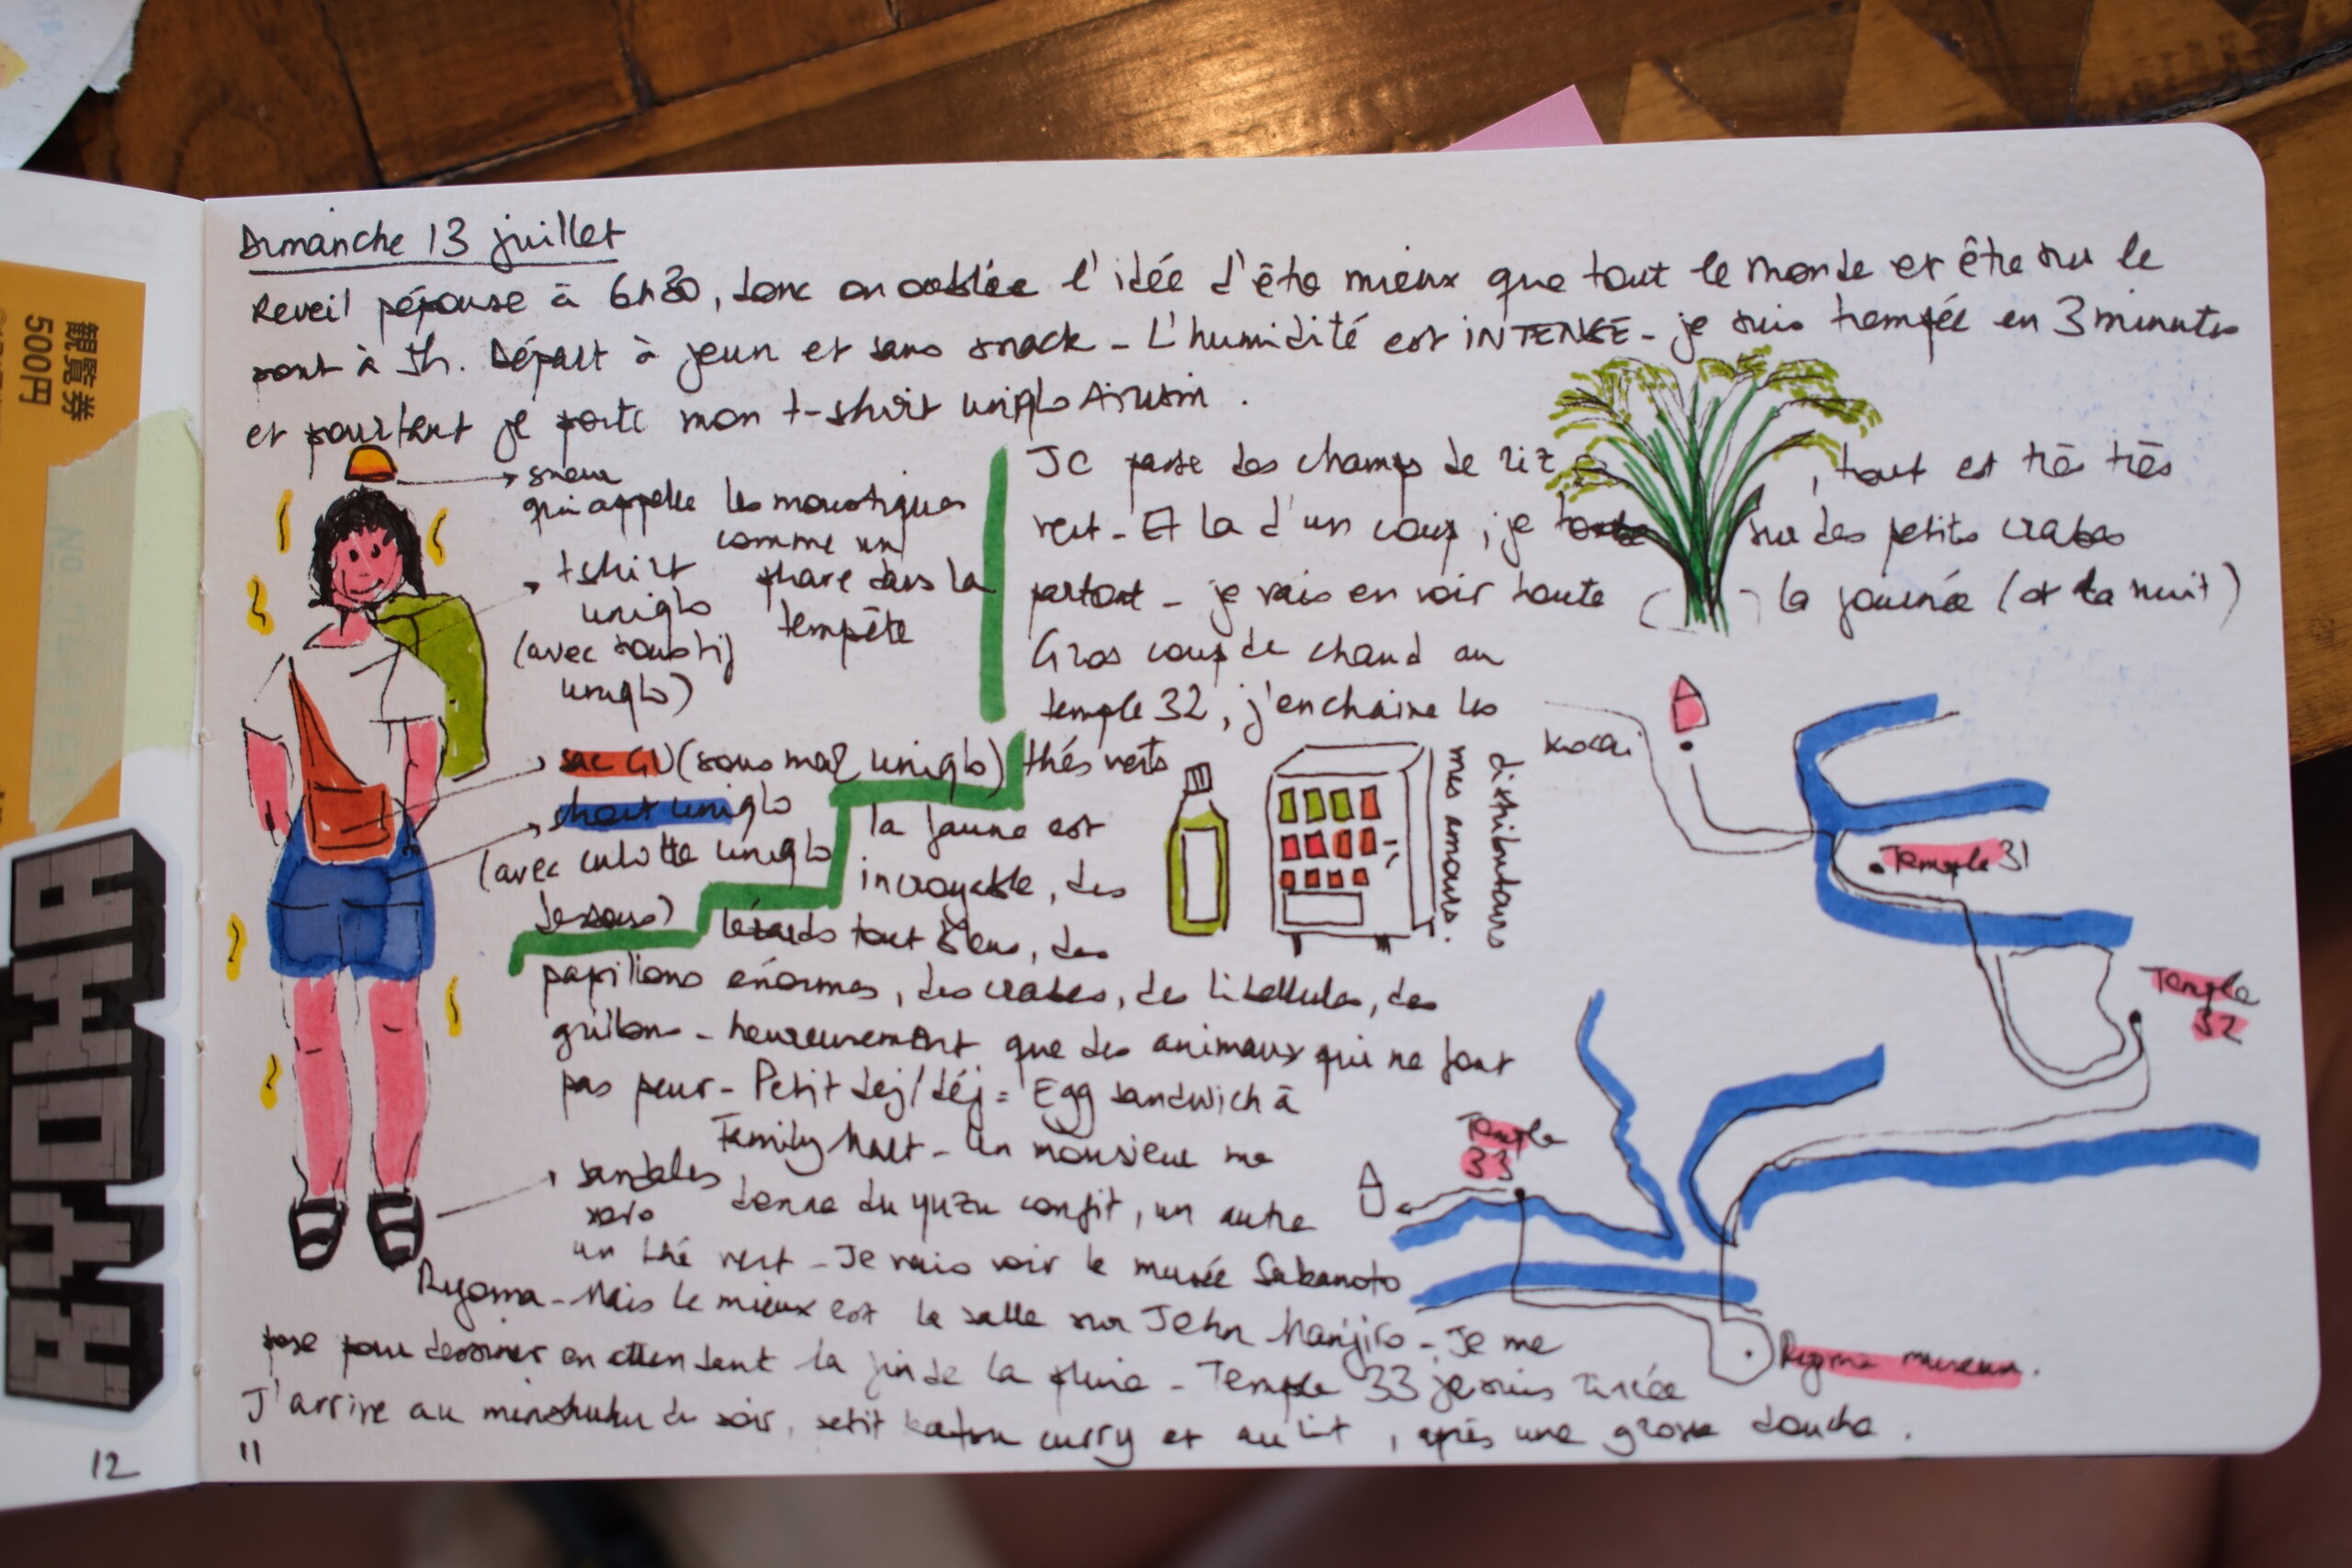 Dimanche 13 juillet
Reveil pépouse à 6h30, donc on oublie l'idée d'être mieux que tout le monde et être sur le
pont à 5h. Départ à jeun et sans snack - L'humidité est INTENSE - je suis trempée en 3 minutes
et pourtant je porte mon t-shirt uniqlo Airism.
sueur
qui appelle les moustiques
comme un
phare dans la
tempête
tshirt
uniqlo
(avec soustif
uniqlo)
sac GU (sous marq uniqlo)
short uniqlo
(avec culotte uniqlo
dessous)
Je passe des champs de riz, tout est très très
vert - Et là d'un coup, je tombe sur des petits crabes
partout - je vais en voir toute la journée (et la nuit)
Gros coup de chaud au
temple 32, j'enchaine les
thés verts
la faune est
incroyable, des
lézards tout bleus, des
papillons énormes, des crabes, des libellules, des
grillons - heureusement que des animaux qui ne font
pas peur - Petit dej/déj = Egg sandwich à
Family Mart - Un monsieur me
donne du yuzu confit, un autre
un thé vert - Je vais voir le musée Sakamoto
Ryoma - Mais le mieux est la salle sur John Manjiro - Je me
pose pour dessiner en attendant la fin de la pluie - Temple 33 je suis rincée
J'arrive au minshuku du soir, petit katsu curry et au lit, après une grosse douche.
sandales
xero
distributeurs
mes amours.
Kocai
Temple 31
Temple
32
Temple
33
Ryoma museum.
11
12
観覧券
500円
RYOMA